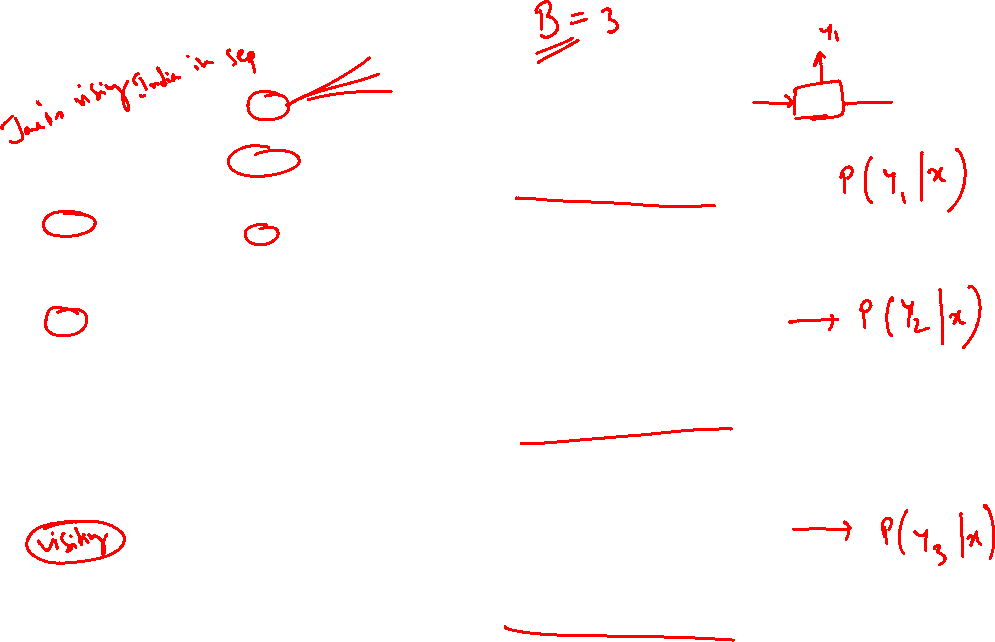 B = 3
Jane is visiting India in sep
y₁
P(y₁|x)
→ P(y₂|x)
visiting
→ P(y₃|x)